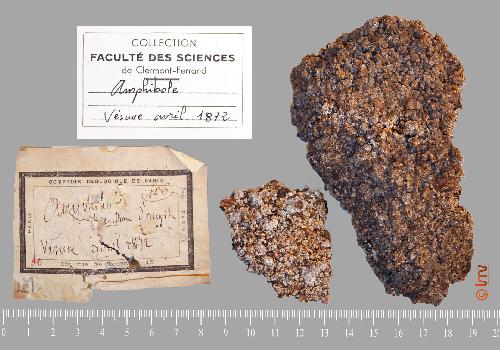 COLLECTION
FACULTÉ DES SCIENCES
de Clermont-Ferrand
Amphibole
Vésuve avril 1872
COMPTOIR GÉOLOGIQUE DE PARIS
PARIS
PARIS
Vésuve avril 1872
lmv
0 1 2 3 4 5 6 7 8 9 10 11 12 13 14 15 16 17 18 19 20